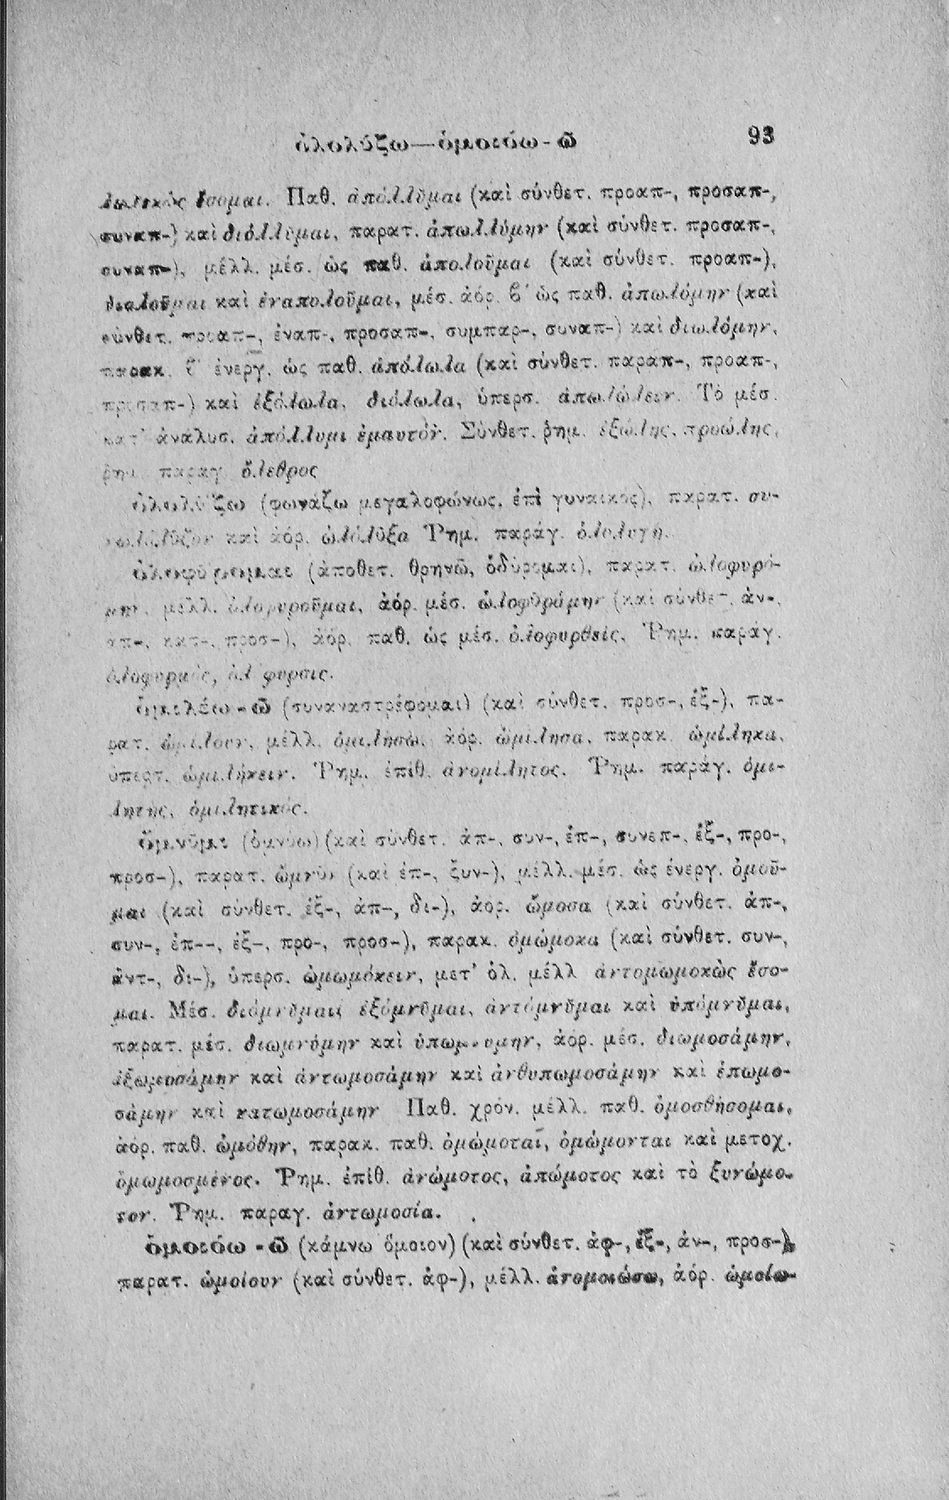 ὀλολύζω—ὁμοιόω-ῶ 93
λωλεκὼς ἔσομαι. Παθ. ἀπόλλῠμαι (καὶ σύνθετ. προαπ-, προσαπ-,
συναπ-) καὶ διόλλυμαι, παρατ. ἀπωλλύμην (καὶ σύνθετ. προσαπ-,
συναπ-), μέλλ. μέσ. ὡς παθ. ἀπολοῦμαι (καὶ σύνθετ. προαπ-),
διολοῦμαι καὶ ἐναπολοῦμαι, μέσ. ἀόρ. ϐ΄ ὡς παθ. ἀπωλόμην (καὶ
σύνθετ. προαπ-, ἐναπ-, προσαπ-, συμπαρ-, συναπ-) καὶ διωλόμην,
παρακ. ϐ΄ ἐνεργ. ὡς παθ. ἀπόλωλα (καὶ σύνθετ. παραπ-, προαπ-,
προσαπ-) καὶ ἐξόλωλα, διόλωλα, ὑπερσ. ἀπωλώλειν. Τὸ μέσ.
κατ' ἀνάλυσ. ἀπόλλυμι ἐμαυτόν. Σύνθετ. ῥημ. ἐξώλης, προώλης,
ῥημ. παραγ. ὄλεθρος
ὀλολύζω (φωνάζω μεγαλοφώνως, ἐπὶ γυναικός), παρατ. συ-
νωλόλῠζον καὶ ἀόρ. ὠλόλῠξα Ῥημ. παράγ. ὀλολυγή.
ὀλοφύρομαι (ἀποθετ. θρηνῶ, ὀδύρομαι), παρατ. ὠλοφυρό-
μην, μέλλ. ὀλοφυροῦμαι, ἀόρ. μέσ. ὠλοφῡράμην (καὶ σύνθετ. ἀν-,
ἀπ-, κατ-, προσ-), ἀόρ. παθ. ὡς μέσ. ὀλοφυρθείς. Ῥημ. παράγ.
ὀλοφυρμός, ὀλόφυρσις.
ὁμιλέω-ῶ (συναναστρέφομαι) (καὶ σύνθετ. προσ-, ἐξ-), πα-
ρατ. ὡμίλουν, μέλλ. ὁμιλήσω, ἀόρ. ὡμίλησα, παρακ. ὡμίληκα,
ὑπερσ. ὡμιλήκειν. Ῥημ. ἐπίθ. ἀνομίλητος. Ῥημ. παράγ. ὁμι-
λητής, ὁμιλητικός.
ὄμνῡμι (ὀμνύω) (καὶ σύνθετ. ἀπ-, συν-, ἐπ-, συνεπ-, ἐξ-, προ-,
προσ-), παρατ. ὤμνῡν (καὶ ἐπ-, ξυν-), μέλλ. μέσ. ὡς ἐνεργ. ὀμοῦ-
μαι (καὶ σύνθετ. ἐξ-, ἀπ-, δι-), ἀόρ. ὤμοσα (καὶ σύνθετ. ἀπ-,
συν-, ἐπ--, ἐξ-, προ-, προσ-), παρακ. ὀμώμοκα (καὶ σύνθετ. συν-,
ἀντ-, δι-), ὑπερσ. ὠμωμόκειν, μετ' ὁλ. μέλλ ἀντομωμοκὼς ἔσο-
μαι. Μέσ. διόμνῠμαι, ἐξόμνῠμαι, ἀντόμνῠμαι καὶ ὑπόμνῠμαι,
παρατ. μέσ. διωμνύμην καὶ ὑπωμνύμην, ἀόρ. μέσ. διωμοσάμην,
ἐξωμοσάμην καὶ ἀντωμοσάμην καὶ ἀνθυπωμοσάμην καὶ ἐπωμο-
σάμην καὶ κατωμοσάμην Παθ. χρόν. μέλλ. παθ. ὀμοσθήσομαι,
ἀόρ. παθ. ὠμόθην, παρακ. παθ. ὀμώμοται, ὀμώμονται καὶ μετοχ.
ὀμωμοσμένος. Ῥημ. ἐπίθ. ἀνώμοτος, ἀπώμοτος καὶ τὸ ξυνώμο-
τον. Ῥημ. παραγ. ἀντωμοσία.
ὁμοιόω-ῶ (κάμνω ὅμοιον) (καὶ σύνθετ. ἀφ-, ἐξ-, ἀν-, προσ-),
παρατ. ὡμοίουν (καὶ σύνθετ. ἀφ-), μέλλ. ἀνομοιώσω, ἀόρ. ὡμοίω-